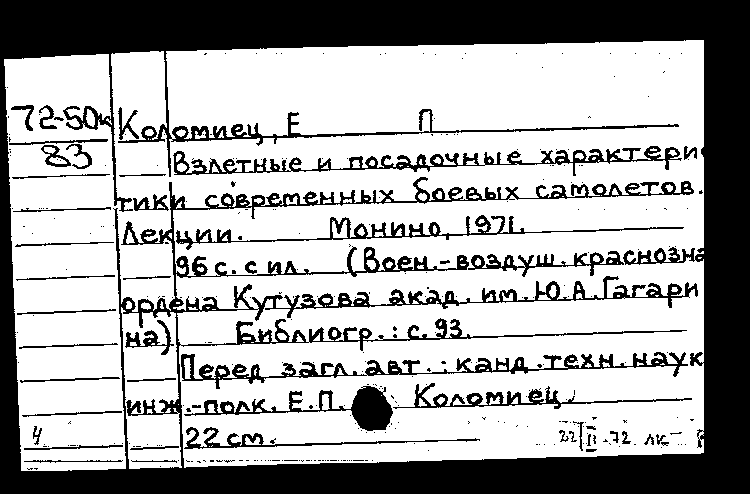 72-50к Коломиец, Е П
83 Взлетные и посадочные характери
тики современных боевых самолетов.
Лекции. Монино, 1971.
96 с. с ил. (Воен.-воздуш. краснозна
ордена Кутузова акад. им. Ю.А. Гагари
на) Библиогр.: с. 93.
Перед загл. авт.: канд. техн. наук
инж.-полк. Е.П. Коломиец.
4 22 см. 22/II-72 лк